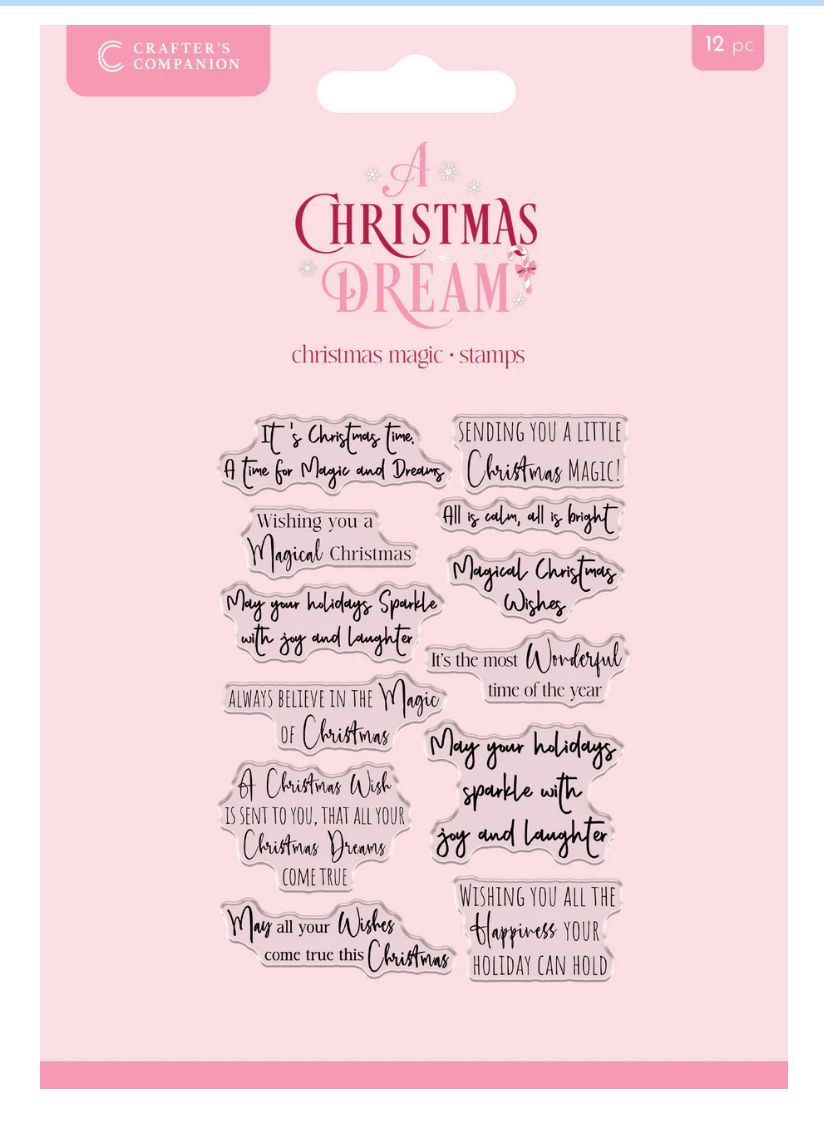 CRAFTER'S
COMPANION
12 pc
A
CHRISTMAS
DREAM
christmas magic • stamps
It's Christmas time,
A time for Magic and Dreams
SENDING YOU A LITTLE
Christmas MAGIC!
Wishing you a
Magical Christmas
All is calm, all is bright
Magical Christmas
Wishes
May your holidays Sparkle
with joy and laughter
It's the most Wonderful
time of the year
ALWAYS BELIEVE IN THE Magic
OF Christmas
May your holidays
sparkle with
joy and laughter
A Christmas Wish
IS SENT TO YOU, THAT ALL YOUR
Christmas Dreams
COME TRUE
WISHING YOU ALL THE
Happiness YOUR
HOLIDAY CAN HOLD
May all your Wishes
come true this Christmas